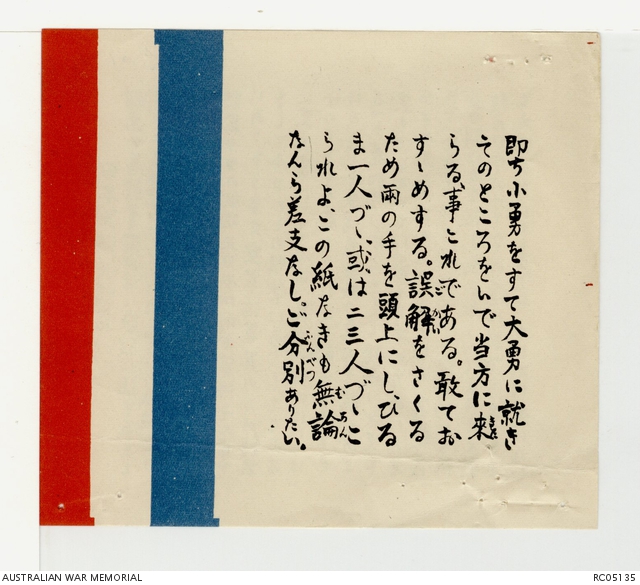 即ち小勇をすて大勇に就き
そのところをしんで当方に來
らる事これである。敢てお
すゝめする。誤解をさくる
ため両の手を頭上にし、ひる
ま一人づゝ、或は二三人づゝこ
られよ、この紙なきも無論
なんら差支なし。ご分別ありたい。
AUSTRALIAN WAR MEMORIAL
RC05135